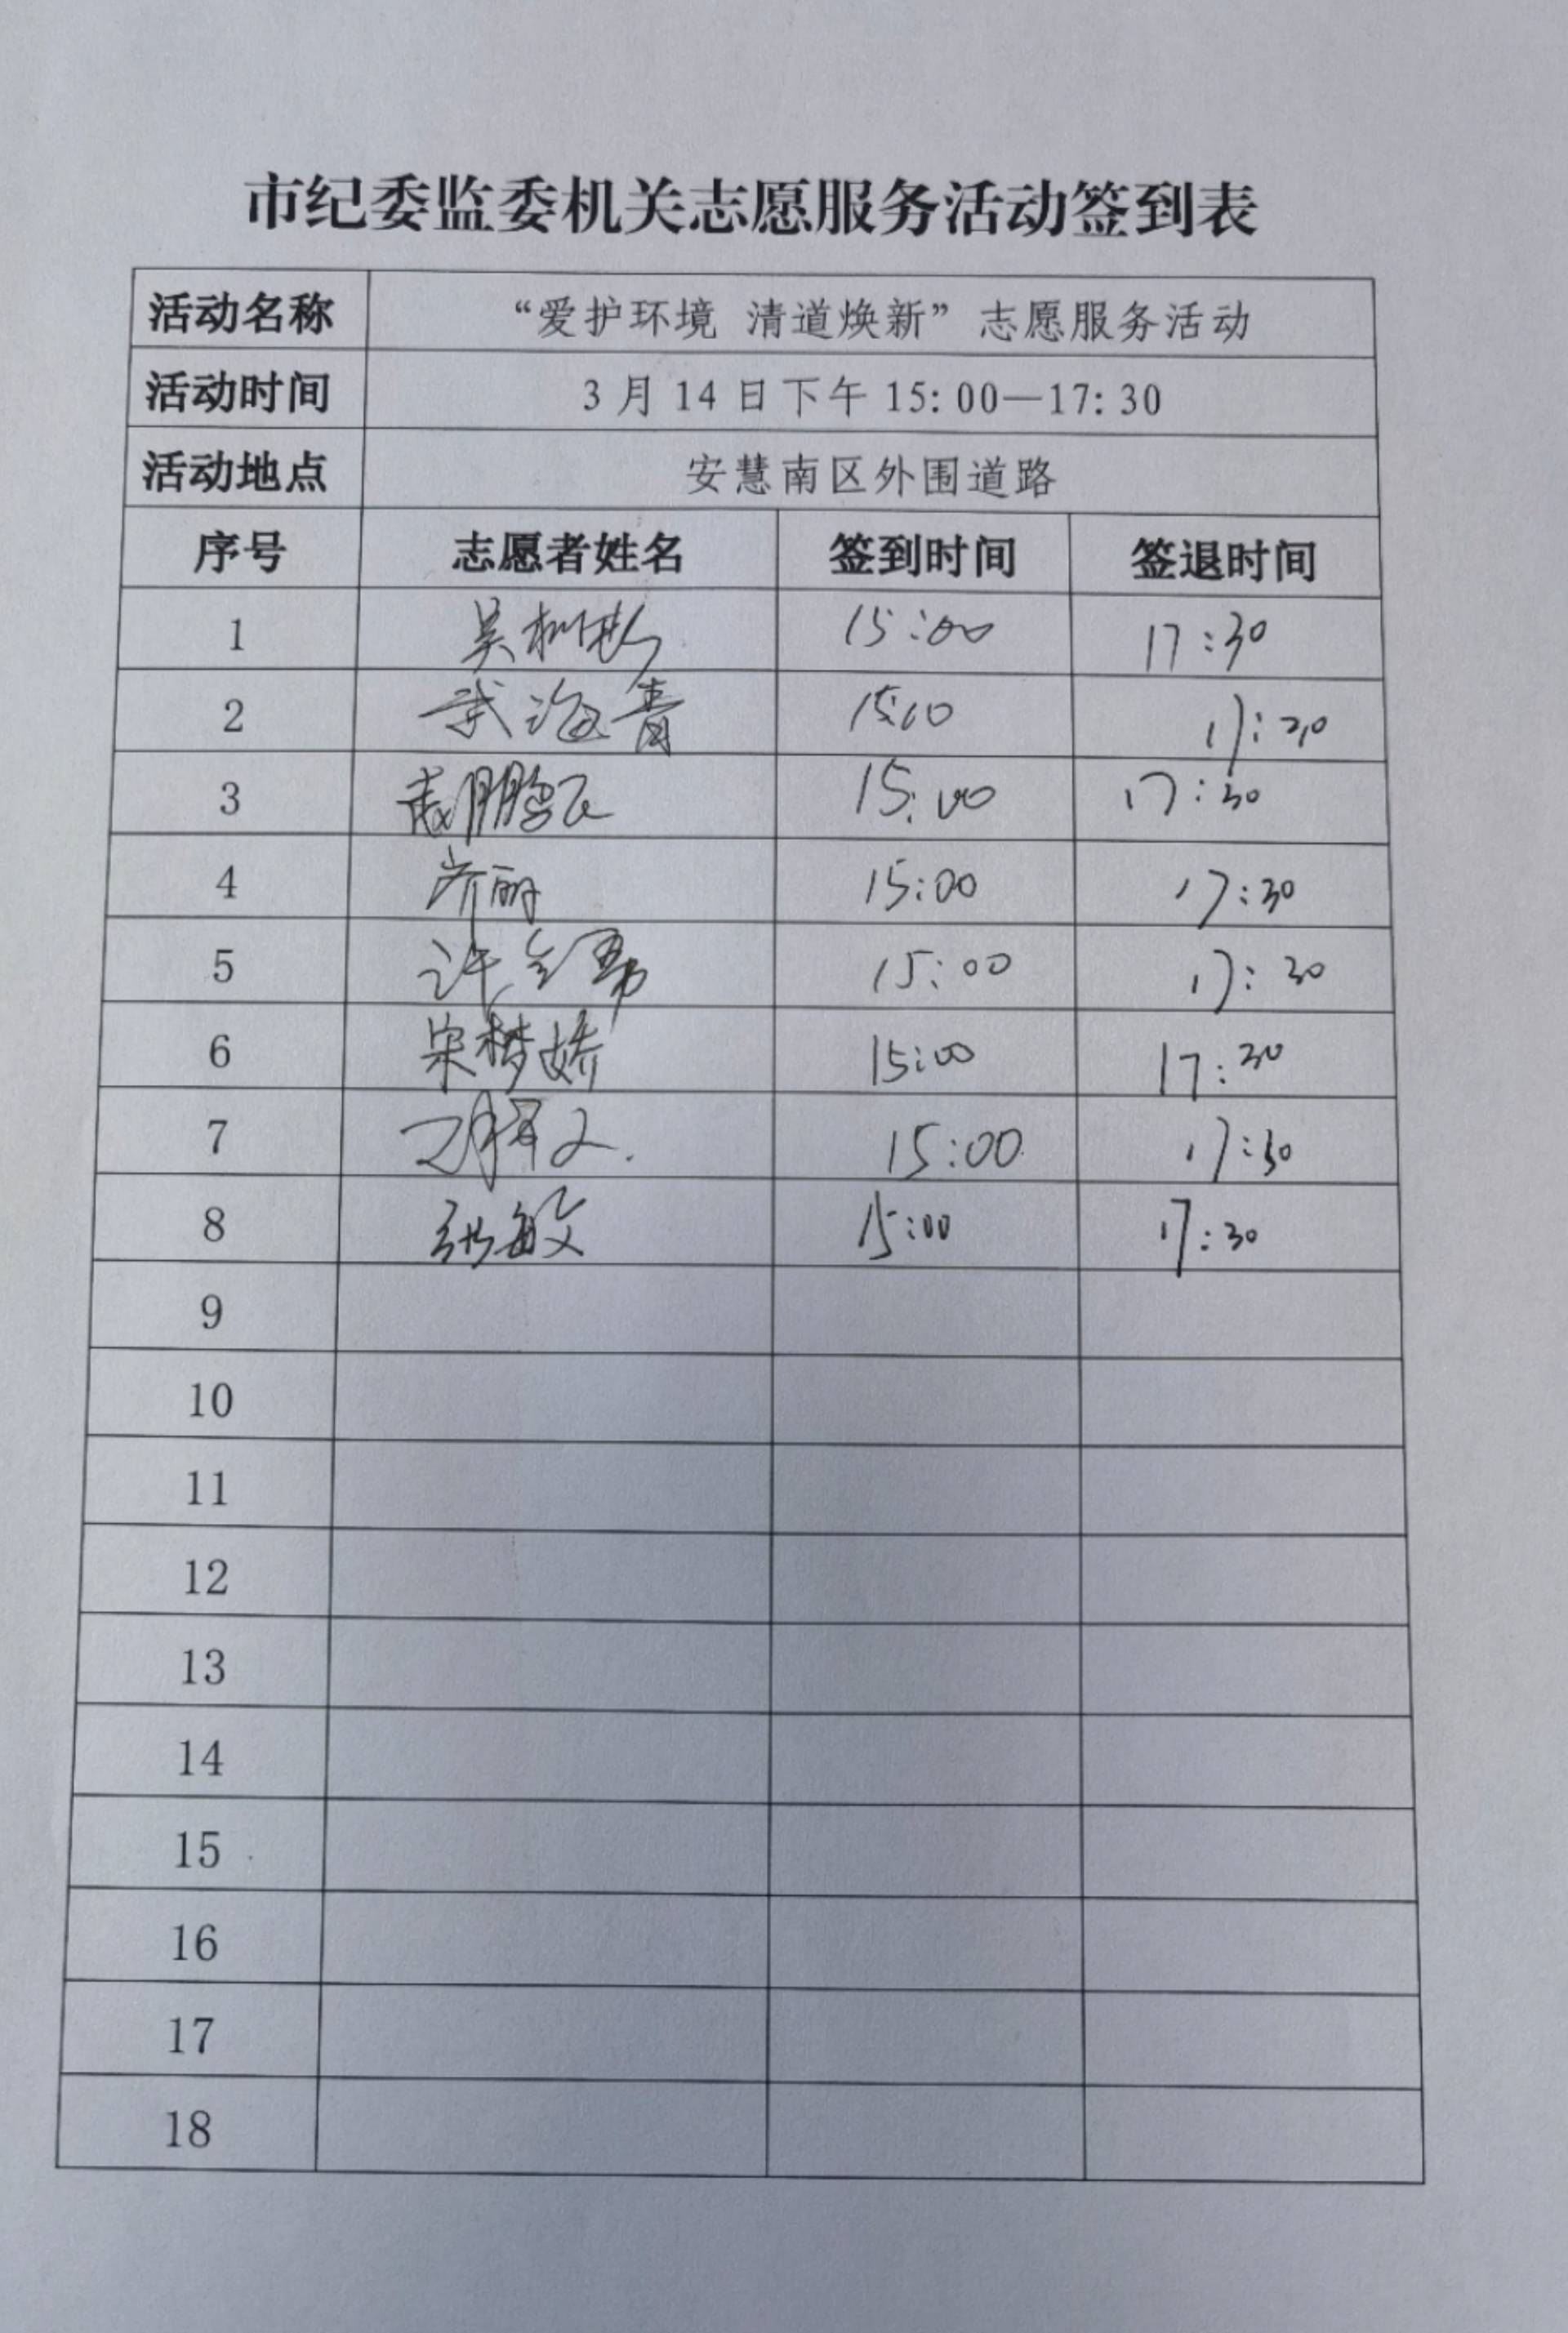 市纪委监委机关志愿服务活动签到表
活动名称 “爱护环境 清道焕新”志愿服务活动
活动时间 3月14日下午15:00—17:30
活动地点 安慧南区外围道路
序号 志愿者姓名 签到时间 签退时间
1 吴树彬 15:00 17:30
2 武海青 15:00 17:30
3 15:00 17:30
4 乔丽 15:00 17:30
5 15:00 17:30
6 宋梦娇 15:00 17:30
7 15:00 17:30
8 张敏 15:00 17:30
9
10
11
12
13
14
15
16
17
18